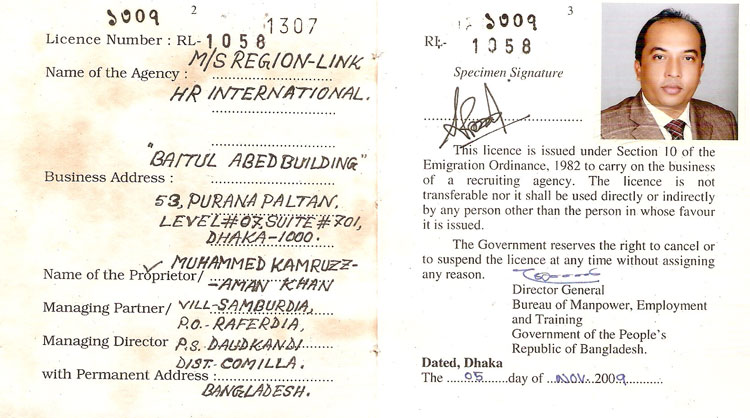 2
2009
1307
Licence Number : RL-1058
M/S REGION-LINK
Name of the Agency :
HR INTERNATIONAL.
"BAITUL ABED BUILDING"
Business Address :
53, PURANA PALTAN.
LEVEL#07, SUITE #701,
DHAKA-1000.
MUHAMMED KAMRUZZ-
Name of the Proprietor/ -AMAN KHAN
Managing Partner/ VILL-SAMBURDIA,
P.O.- RAFERDIA,
Managing Director P.S. DAUDKANDI
DIST- COMILLA.
with Permanent Address :
BANGLADESH.
3
2009
RL- 1058
Specimen Signature
This licence is issued under Section 10 of the
Emigration Ordinance, 1982 to carry on the business
of a recruiting agency. The licence is not
transferable nor it shall be used directly or indirectly
by any person other than the person in whose favour
it is issued.
The Government reserves the right to cancel or
to suspend the licence at any time without assigning
any reason.
Director General
Bureau of Manpower, Employment
and Training
Government of the People's
Republic of Bangladesh.
Dated, Dhaka
The ......05......day of ...NOV...2009............